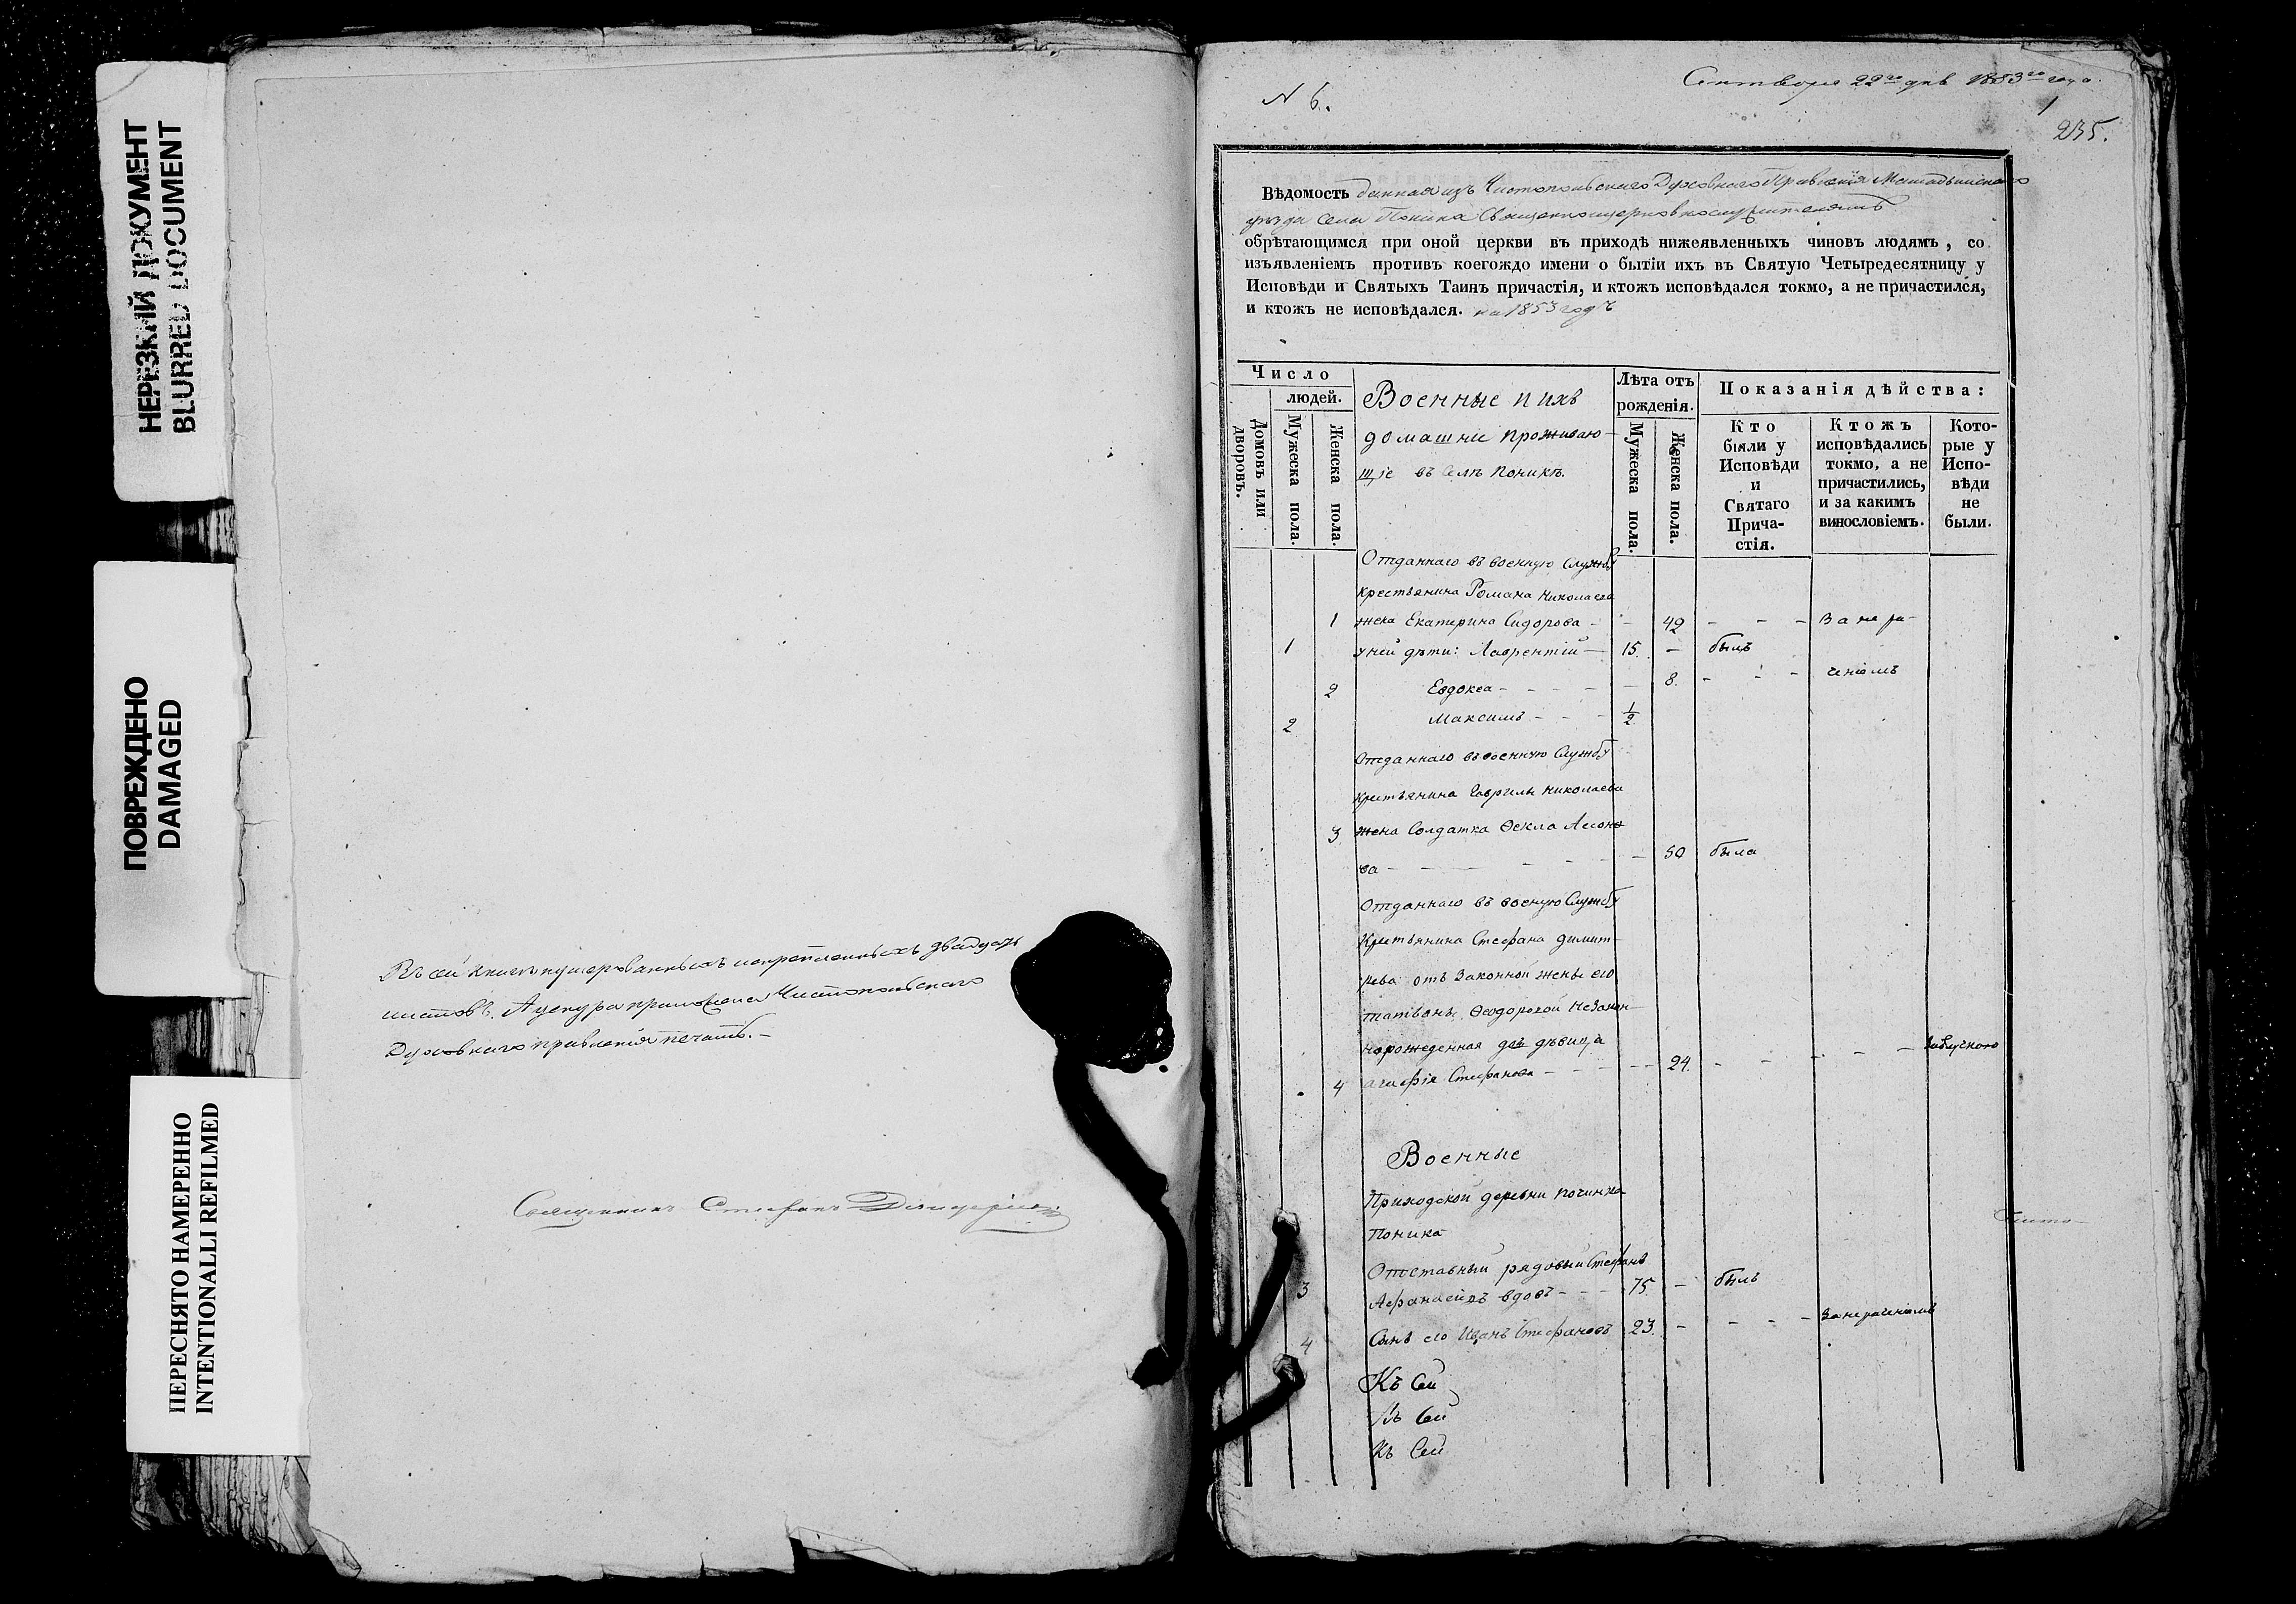 НЕРЕЗКИЙ ДОКУМЕНТ
BLURRED DOCUMENT
ПОВРЕЖДЕНО
DAMAGED
ПЕРЕСНЯТО НАМЕРЕННО
INTENTIONALLI REFILMED
Въ сей книгѣ нумерованныхъ искрепленныхъ двадцать
листовъ. Ауснура приложена Чистопольскаго
Духовнаго правленія печать.-
Священникъ Стефанъ
N 6.
Сентября 22го дня 1853го года.
1
235.
Вѣдомость данная изъ Чистопольскаго Духовнаго Правленія Мамадышскаго
уѣзда села Поника Священноцерковнослужителямъ
обрѣтающимся при оной церкви въ приходѣ нижеявленныхъ чиновъ людямъ, со
изъявленіемъ противъ коегождо имени о бытіи ихъ въ Святую Четыредесятницу у
Исповѣди и Святыхъ Таинъ причастія, и ктожъ исповѣдался токмо, а не причастился,
и ктожъ не исповѣдался. на 1853 годъ
Число
людей.
Домовъ или дворовъ.
Мужеска пола.
Женска пола.
Военные и ихъ
домашніе проживаю-
щіе въ Селѣ Поникѣ.
Лѣта отъ
рожденія.
Мужеска пола.
Женска пола.
Показанія дѣйства:
Кто
были у
Исповѣди
и
Святаго
Прича-
стія.
Ктожъ
исповѣдались
токмо, а не
причастились,
и за какимъ
винословіемъ.
Кото-
рые у
Испо-
вѣди
не
были.
Отданнаго въ военную Службу
крестьянина Романа Николаева
1 жена Екатерина Сидорова - - 42 - - - За нера-
1 у ней дѣти: Лаврентій - 15. - былъ
2 Евдокеа - - - - 8. - - - ченіемъ
2 Максимъ - - - 1/2
Отданнаго въ военную Службу
Крестьянина Гаврилы Николаева
3 жена Солдатка Ѳекла Леоно
ва - - - - - 50 была
Отданнаго въ военую Службу
Крестьянина Стефана димит-
рева отъ Законной жены его
татіоны Ѳеодоровой НеЗакон-
норожденная дѣвица
4 Агафія Стефанова - - - - 24. - - - - -
Военные
Приходской деревни починка
Поника
Отставный рядовый Стефанъ
3 Афанасьевъ вдовъ - - - 75 - былъ
4 Сынъ его Иванъ Стефановъ 23. - - - - Занераченіемъ
Къ Сей
Къ Сей
Къ Сей